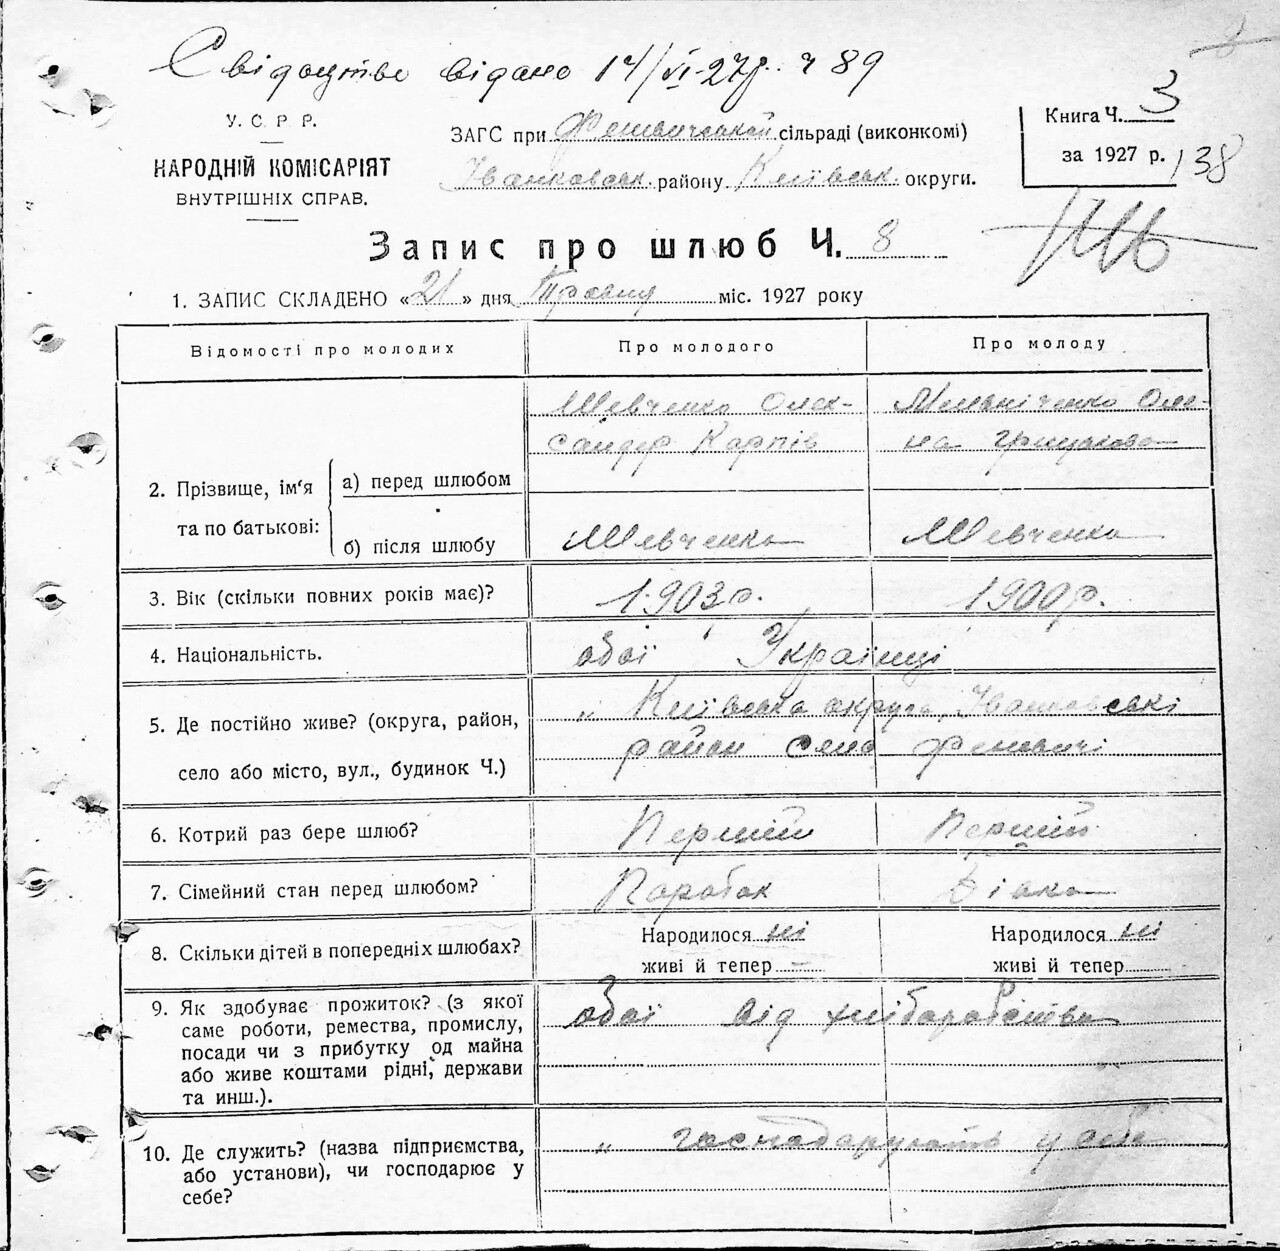 Свідоцтво відано 14/VI-27р. ч 89
У. С. Р. Р.
НАРОДНІЙ КОМІСАРІЯТ
ВНУТРІШНІХ СПРАВ.
ЗАГС при Феневичській сільраді (виконкомі)
Іванковськ. району Київськ. округи.
Книга Ч. 3
за 1927 р.
138
Запис про шлюб Ч. 8
1. ЗАПИС СКЛАДЕНО «21» дня Травня міс. 1927 року
Відомості про молодих
Про молодого
Про молоду
2. Прізвище, ім'я
та по батькові:
а) перед шлюбом
Шевченко Олек-
сандер Карпів
Мельніченко Оле-
на Грицькова
б) після шлюбу
Шевченко
Шевченко
3. Вік (скільки повних років має)?
1903 р.
1900 р.
4. Національність.
обої Українці
5. Де постійно живе? (округа, район,
село або місто, вул., будинок Ч.)
„ Київська округа, Іванковські
район село Феневичі
6. Котрий раз бере шлюб?
Перший
Перший
7. Сімейний стан перед шлюбом?
Паробок
Дівка
8. Скільки дітей в попередніх шлюбах?
Народилося ні
живі й тепер —
Народилося ні
живі й тепер
9. Як здобуває прожиток? (з якої
саме роботи, ремества, промислу,
посади чи з прибутку од майна
або живе коштами рідні, держави
та инш.).
обої від хліборобства
10. Де служить? (назва підприємства,
або установи), чи господарює у
себе?
„ господарують у себе